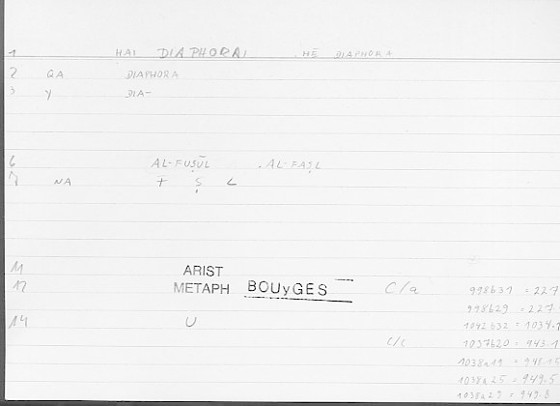 1 HAI DIAPHORAI . HĒ DIAPHORA
2 QA DIAPHORA
3 Y DIA-
6 AL-FUṢŪL . AL-FAṢL
NA F Ṣ L
11 ARIST
12 METAPH BOUyGES C/a 998b31 = 227
998b29 = 227.
14 U 1042b32 = 1034.1
c/c 1037b20 = 943.1
1038a19 = 948.15
1038a25 = 949.5
1038a29 = 949.8